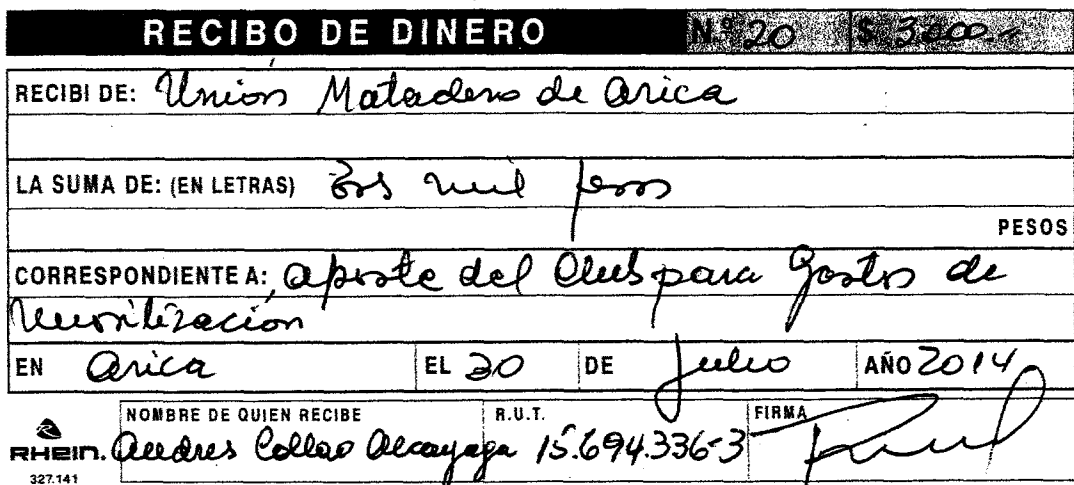 RECIBO DE DINERO N.º 20 $ 3000.-
RECIBI DE: Unión Matadero de Arica
LA SUMA DE: (EN LETRAS) mil pesos
PESOS
CORRESPONDIENTE A: aporte del Club para Gastos de
Movilización
EN Arica EL 30 DE Julio AÑO 2014
NOMBRE DE QUIEN RECIBE R.U.T. FIRMA
RHein. Andres Collao Alcayaga 15.694.336-3
327.141